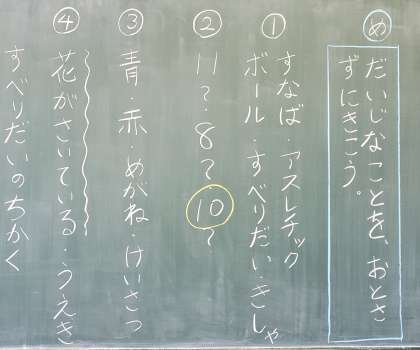 め
だいじなことを、おとさ
ずにきこう。
①
すなば・アスレチック
ボール・すべりだい・きしゃ
②
11?8?10?
③
青・赤・めがね・けいさつ
④
花がさいている・うえき
すべりだいのちかく